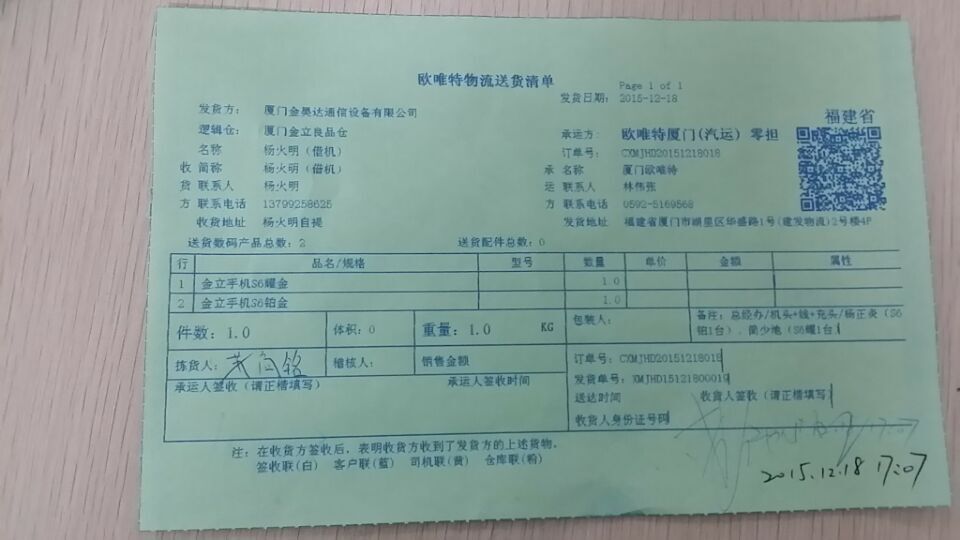 欧唯特物流送货清单
Page 1 of 1
发货日期： 2015-12-18
发货方： 厦门金昊达通信设备有限公司
福建省
逻辑仓： 厦门金立良品仓
承运方： 欧唯特厦门(汽运) 零担
名称 杨火明（借机）
订单号： CXMJHD20151218018
收 简称 杨火明（借机）
承 名称 厦门欧唯特
货 联系人 杨火明
运 联系人 林伟强
方 联系电话 13799258625
方 联系电话 0592-5169568
收货地址 杨火明自提
发货地址 福建省厦门市湖里区华盛路1号(建发物流)2号楼4F
送货数码产品总数：2 送货配件总数：0
行 品名/规格 型号 数量 单价 金额 属性
1 金立手机S6耀金 1.0
2 金立手机S6铂金 1.0
件数：1.0 体积：0 重量：1.0 KG 包装人：
备注：总经办/机头+线+充头/杨正炎（S6
铂1台）、简少地（S6耀1台）
拣货人： 稽核人： 销售金额
订单号：CXMJHD20151218018
承运人签收（请正楷填写） 承运人签收时间
发货单号：XMJHD15121800019
送达时间 收货人签收（请正楷填写）
收货人身份证号码
17:07
2015.12.18 17:07
注：在收货方签收后，表明收货方收到了发货方的上述货物。
签收联(白) 客户联(蓝) 司机联(黄) 仓库联(粉)